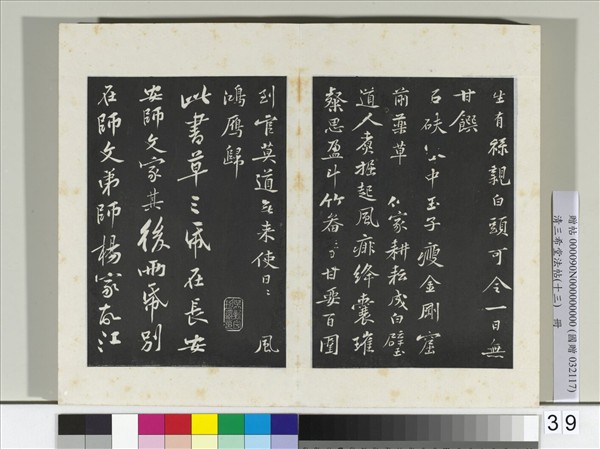 生有祿親白頭可令一日無
甘饌
石硤谷中玉子瘦金剛窟
前藥草 仙家耕耘成白璧
道人煮掘起風痱絳囊璀
璨思盈斗竹畚 甘要百圍
到官莫道無來使日日 風
鴻雁歸
此書草三帋在長安
安師文家其後兩帋別
在師文弟師楊家故江
贈帖 000090N000000000 (國贈 032117)
清三希堂法帖(十三) 冊
39